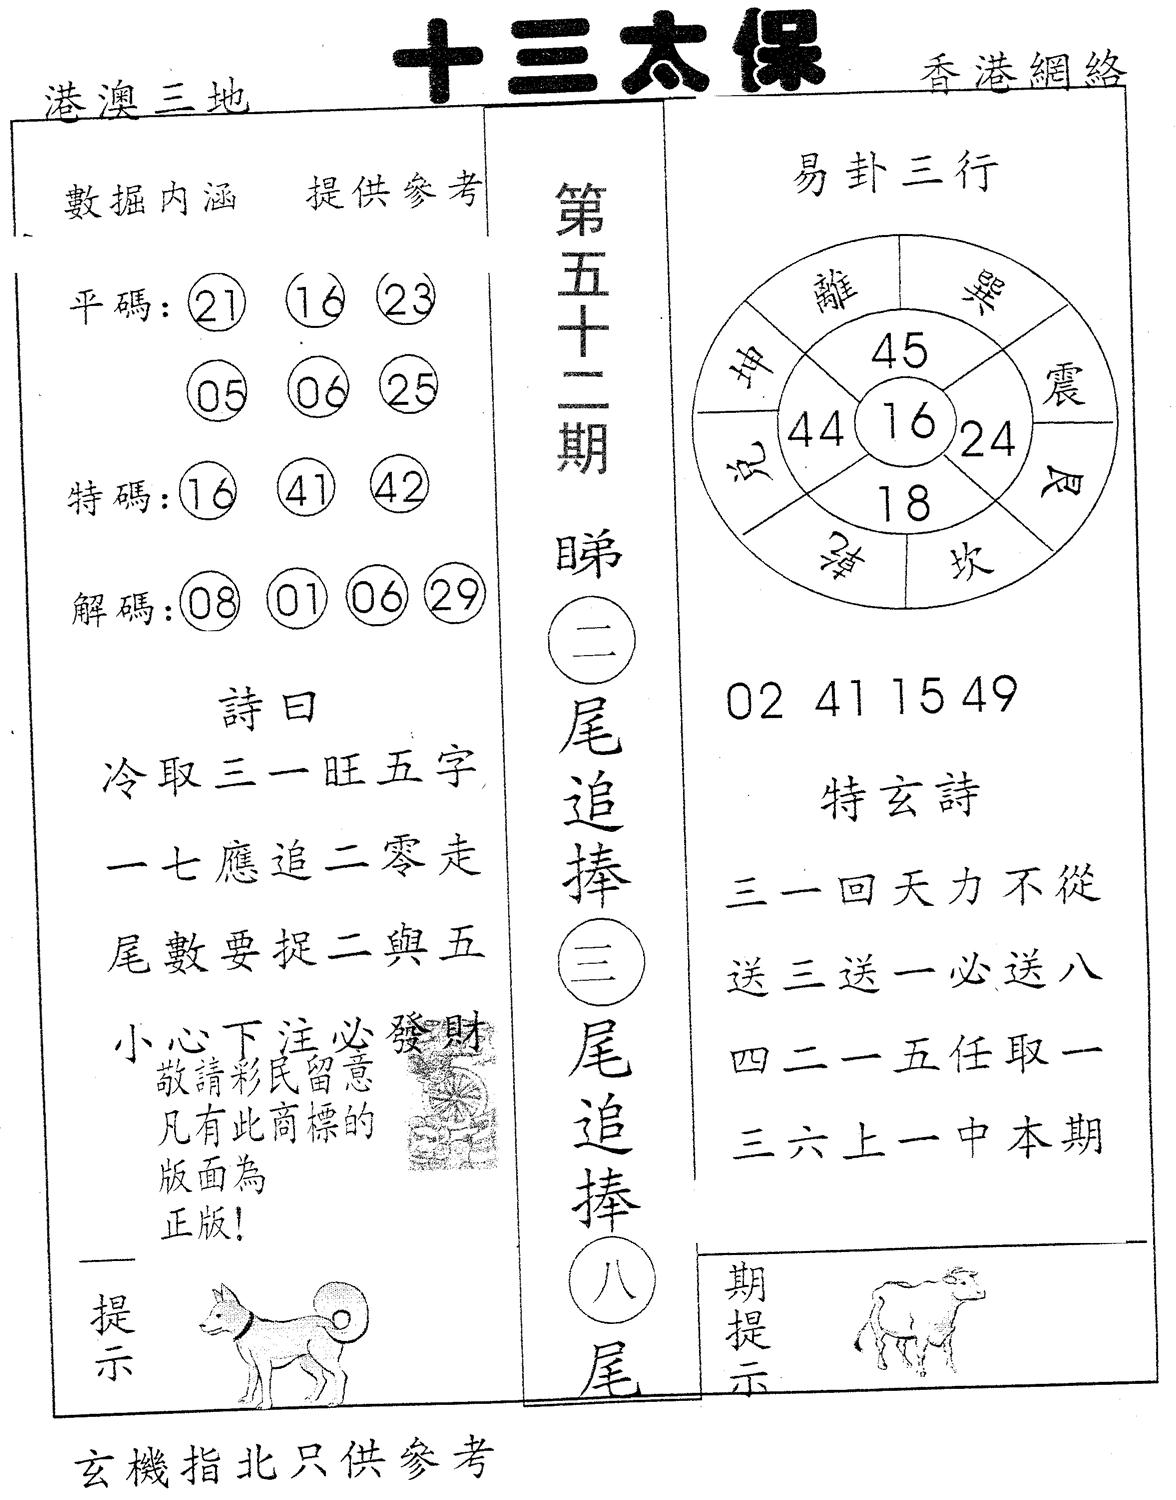 十三太保
港澳三地
香港網絡
數掘内涵 提供參考
平碼: 21 16 23
05 06 25
特碼: 16 41 42
解碼: 08 01 06 29
詩曰
冷取三一旺五字
一七應追二零走
尾數要捉二與五
小心下注必發財
敬請彩民留意
凡有此商標的
版面為
正版!
提示
第五十二期
睇二尾追捧三尾追捧八尾
易卦三行
離 巽
坤 震
兌 艮
乾 坎
45
44 16 24
18
02 41 15 49
特玄詩
三一回天力不從
送三送一必送八
四二一五任取一
三六上一中本期
期提示
玄機指北只供參考